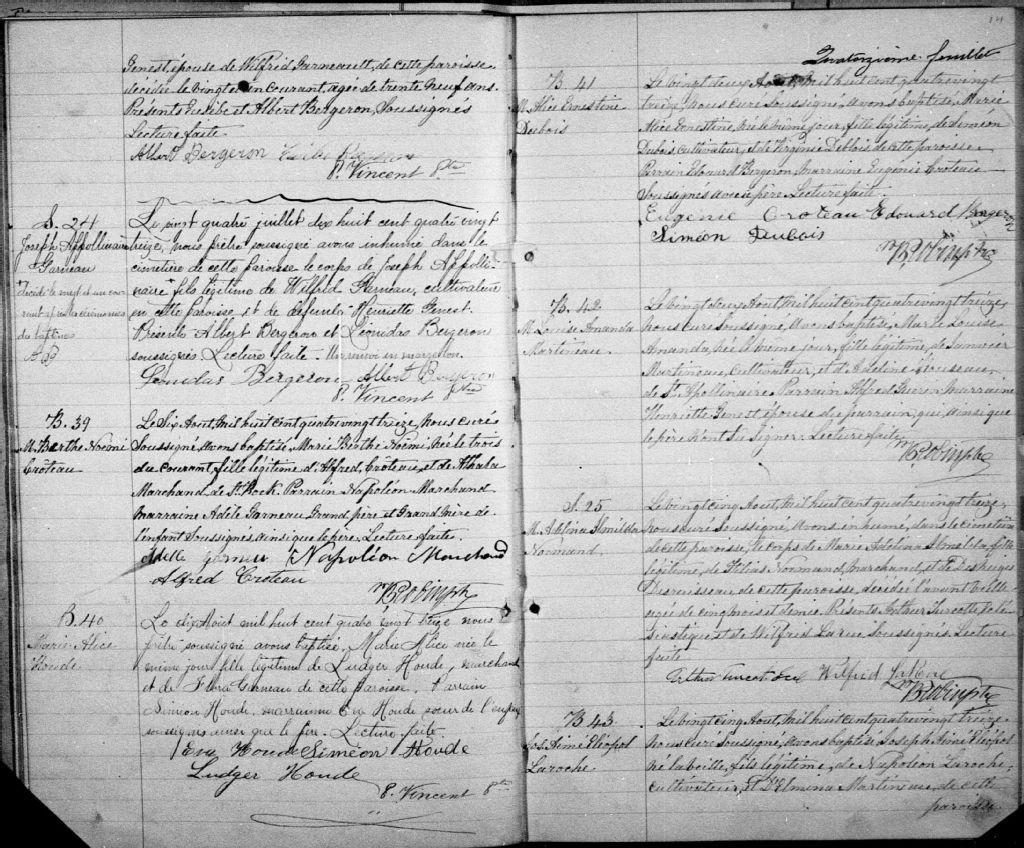 Genest, épouse de Wilfrid Garneault, de cette paroisse
décédée le vingt et un courant, agée de trente neuf ans.
Présents Eusèbe et Albert Bergeron, Soussignés
Lecture faite
Albert Bergeron
P. Vincent Ptre
S. 24
Joseph Appollinaire
Garneau
décidé le vingt et un cou-
rant
du baptême
Le vint quatre juillet dix huit cent quatre vingt
treize, nous prêtre soussigné avons inhumé dans le
cimetière de cette paroisse le corps de Joseph Appolli-
naire fils légitime de Wilfrid Garneau, cultivateur
en cette paroisse et de défunte Henriette Genest.
Présents Albert Bergeron et Léonidas Bergeron
soussignés Lecture faite. Un renvoi en marge bon.
Leonidas Bergeron Albert Bergeron
P. Vincent Ptre
B. 39
M. Berthe Noémi
Crôteau
Le Six Aout, mil huit cent quatre vingt treize, nous curé
Soussigné, avons baptisé, Marie Berthe Noémi, née le trois
du courant, fille légitime d'Alfred Crôteau, et de
Marchand, de St. Rock. Parrain Napoléon Marchand
marraine Adèle Garneau, Grand père et Grand Mère de
l'enfant Soussignés, ainsi que le père, Lecture faite.
Adelle garneau Napoléon Marchand
Alfred Croteau
B. 40
Marie Alice
Houde
Le dix Aout mil huit cent quatre vingt treize nous
prêtre soussigné avons baptisé Marie Alice née le
même jour fille légitime de Ludger Houde, marchand
et de Flora Garneau de cette paroisse. Parrain
Siméon Houde, marraine Eva Houde soeur de l'enfant
soussignés ainsi que le père. Lecture faite.
Eva Houde Siméon Houde
Ludger Houde
P. Vincent Ptre
14
Quatorzième feuillet
B. 41
M. Alice Ernestine
Dubois
Le vingt deux Aout, mil huit cent quatre vingt
treize, Nous curé Soussigné, avons baptisé, Marie
Alice Ernestine, née le même jour, fille légitime, de Siméon
Dubois cultivateur, et de Virginie Deblois de cette paroisse
Parrain Edouard Bergeron, marraine Eugénie Croteau
Soussignés avec le père, Lecture faite
Eugénie Croteau Edouard Bergeron
Siméon Dubois
B. 42
M. Louise Amanda
Martineau.
Le vingt deux Aout, mil huit cent quatre vingt treize,
nous curé Soussigné, avons baptisé, Marie Louise
Amanda, née le même jour, fille légitime, de
Martineau, Cultivateur, et d'Adeline Rousseau,
de St. Apollinaire, Parrain Alfred Guerin, marraine
Henriette Genest épouse du parrain, qui, ainsi que
le père n'ont su Signer, Lecture faite,
S. 25
M. Adelina
Normand.
Le vingt cinq Aout, mil huit cent quatre vingt treize,
nous curé Soussigné, avons inhumé, dans le cimetière
de cette paroisse, le corps de Marie Adelina fille
légitime, de Normand, marchand, et de
de cette paroisse, décédée l'avant veille
agée de cinq mois et demie. Présents, Arthur Turcotte, ecclé-
siastique, et de Wilfrid Larue Soussignés, Lecture
faite
Wilfrid LaRue
B. 43
Jos. Aimé
Laroche.
Le vingt cinq Aout, mil huit cent quatre vingt treize,
nous curé Soussigné, avons baptisé, Joseph Aimé
né la veille, fils légitime, de Napoléon Laroche,
cultivateur, et d'Elmina Martineau, de cette
paroisse